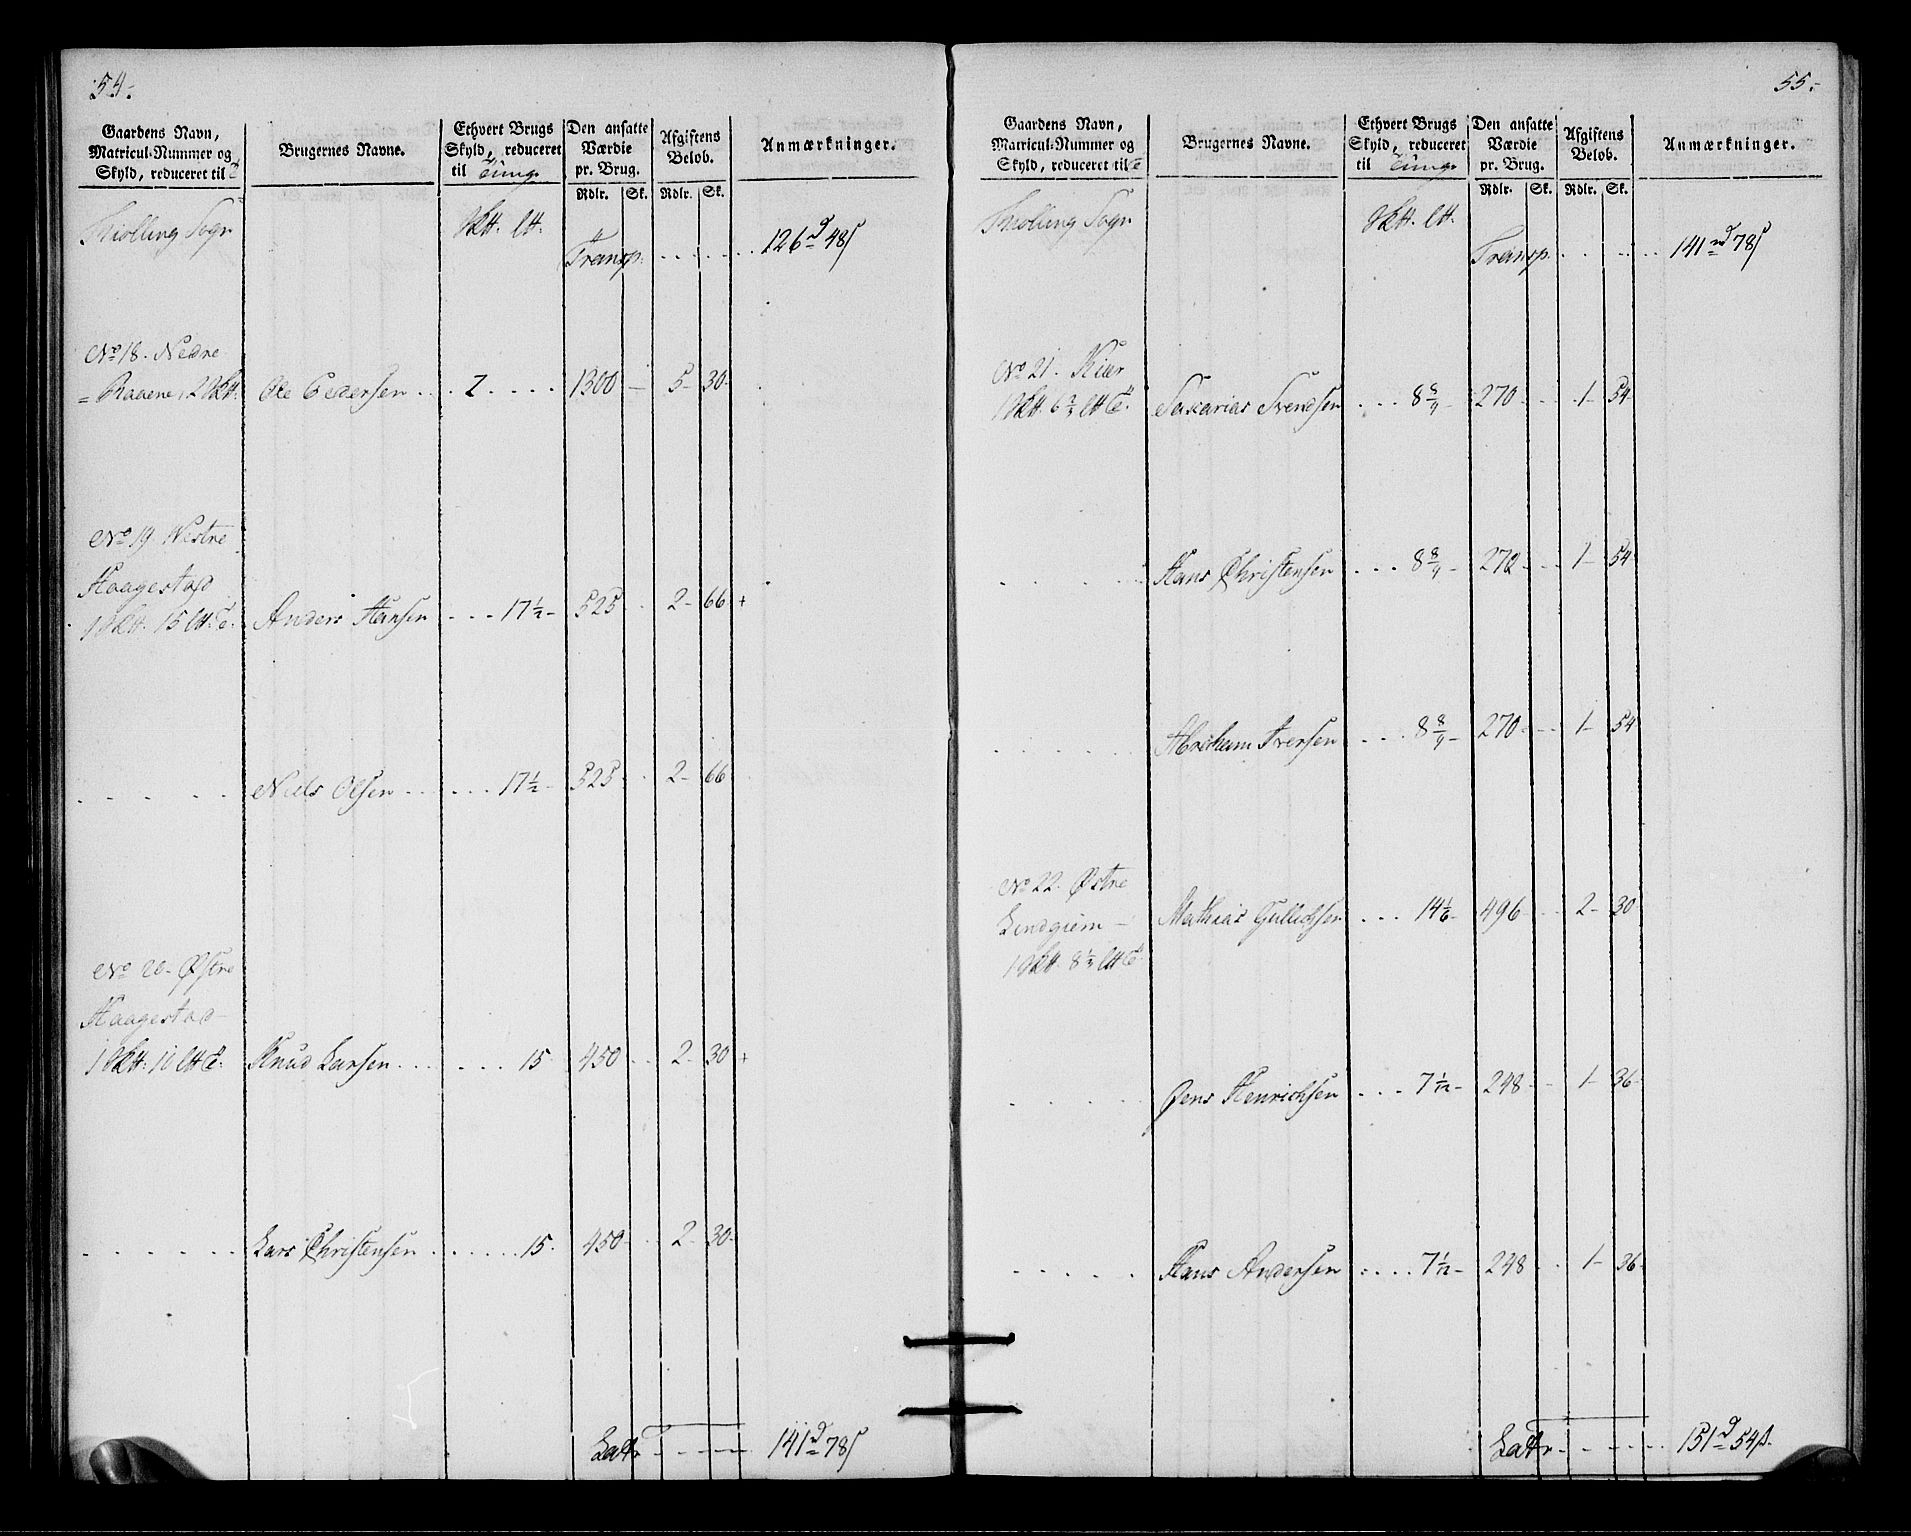 54.
Gaardens Navn, Matricul-Nummer og Skyld, reduceret til
Brugernes Navne.
Ethvert Brugs Skyld, reduceret til Tunge
Den ansatte Værdie pr. Brug.
Afgiftens Belob.
Anmærkninger.
Rdlr. Sk. Rdlr. Sk.
Kiølling Sogn
Transp. . . . . 126 d 48 s
No 18. Nedre
= Raaene, 2 Skt. Ole Pedersen . . 2 . . . . 1300 — 5- 30-
No 19 Westre
Haagestad
1 Skt. 15 Lt. T. Anders Hansen . . . 17 1/2 - 525 . . 2- 66 +
. . . . Niels Olsen . . . . . . 17 1/2 - 525 . . 2- 66
No 20. Østre
Haagestad
1 Skt. 10 Lt T. Knud Larsen . . . . . . 15 450 . . 2- 30 +
. . . . . Lars Christensen . . . . . . 15. 450 . . 2- 30-
Lat . . . . 141 d 78 s
55.
Gaardens Navn, Matricul-Nummer og Skyld, reduceret til
Brugernes Navne.
Ethvert Brugs Skyld, reduceret til Tunge
Den ansatte Værdie pr. Brug.
Afgiftens Belob.
Anmærkninger.
Rdlr. Sk. Rdlr. Sk.
Kiølling Sogn
Transp. . . . . 141 d 78 s
No 21. Kiær
1 Skt. 6 2/3 Lt T. Sakarias Svendsen . . . 8 8/9 - 270 . . 1- 54
. . . . Hans Christensen . . . 8 8/9 - 270 . . 1- 54
. . . . Abraham Iversen . . . 8 8/9 - 270 . . 1- 54
No 22. Østre
Lindgiem -
1 Skt. 8 1/3 Lt T. Mathias Gullichsen . . . 14 1/6 - 496 . . 2- 30
. . . . Jens Henrichsen . . . 7 1/12 - 248 . . 1- 36
. . . . Hans Andersen . . . . 7 1/12 - 248 . . 1- 36
Lat . . . . 151 d 54 s.